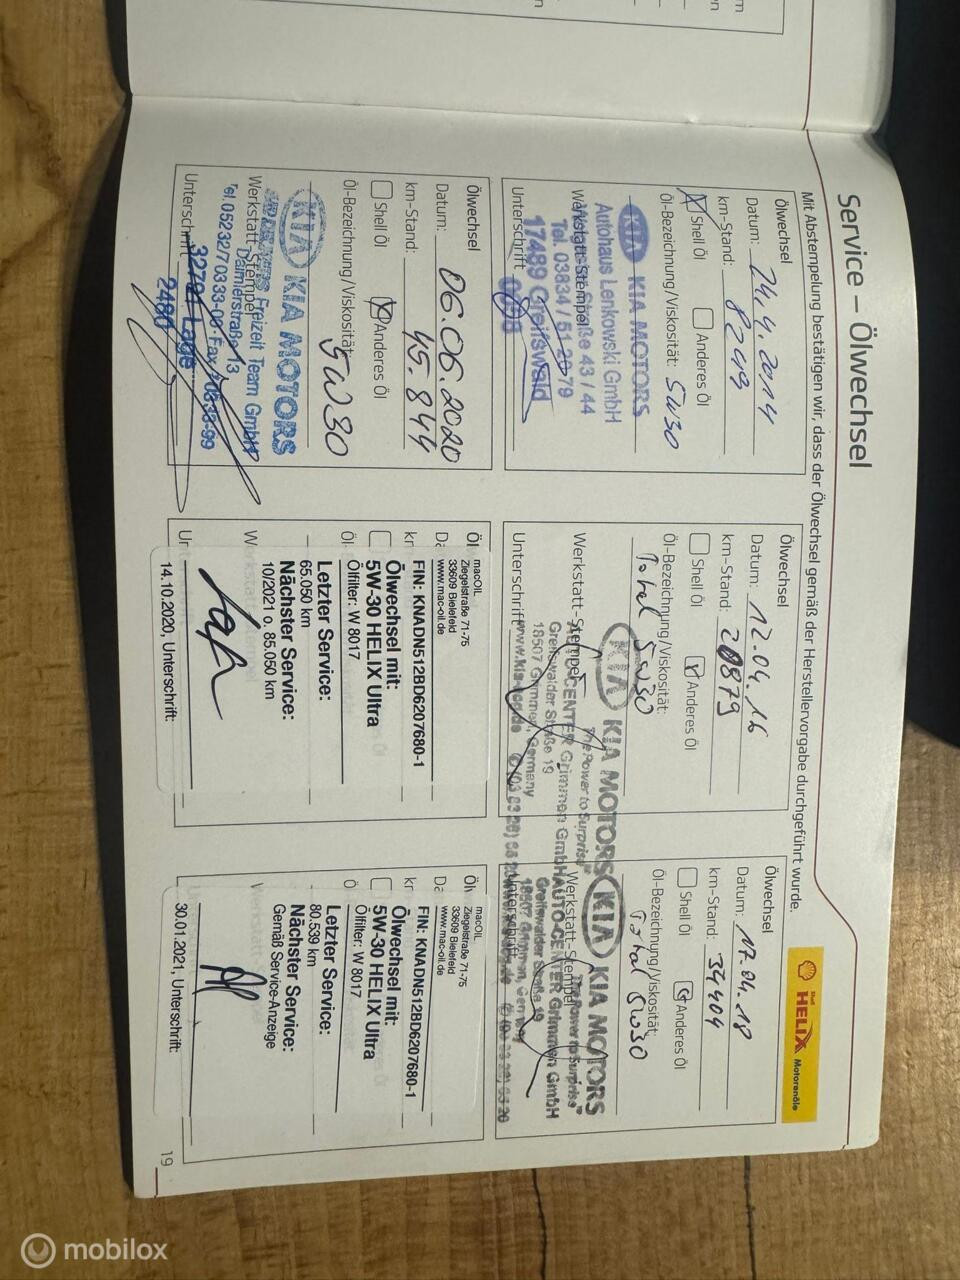 Service – Ölwechsel
Mit Abstempelung bestätigen wir, dass der Ölwechsel gemäß der Herstellervorgabe durchgeführt wurde.
Shell
HELIX
Motorenöle
Ölwechsel
Datum: 24.4.2014
km-Stand: 8249
Shell Öl
Anderes Öl
Öl-Bezeichnung/Viskosität: 5W30
KIA KIA MOTORS
Autohaus Lenkowski GmbH
Straße 43 / 44
Werkstatt-Stempel
Tel. 03834 / 51 20 79
17489 Greifswald
Unterschrift
Ölwechsel
Datum: 12.04.16
km-Stand: 20879
Shell Öl
Anderes Öl
Öl-Bezeichnung/Viskosität:
Total 5W30
KIA KIA MOTORS
The Power to Surprise
Werkstatt-Stempel
AUTO-CENTER Grimmen GmbH
Greifswalder Straße 19
18507 Grimmen, Germany
Unterschrift
Ölwechsel
Datum: 17.04.18
km-Stand: 34409
Shell Öl
Anderes Öl
Öl-Bezeichnung/Viskosität:
Total 5W30
KIA KIA MOTORS
The Power to Surprise
Werkstatt-Stempel
AUTO-CENTER Grimmen GmbH
Greifswalder Straße 19
18507 Grimmen, Germany
Unterschrift
Ölwechsel
Datum: 06.06.2020
km-Stand: 45.844
Shell Öl
Anderes Öl
Öl-Bezeichnung/Viskosität:
5W30
KIA KIA MOTORS
Freizeit Team GmbH
Werkstatt-Stempel
Daimlerstraße 13
Tel. 05232/70333-00
32791 Lage
Unterschrift
2480
macOIL
Ziegelstraße 71-75
33609 Bielefeld
www.mac-oil.de
FIN: KNADN512BD6207680-1
Ölwechsel mit:
5W-30 HELIX Ultra
Ölfilter: W 8017
Letzter Service:
65.050 km
Nächster Service:
10/2021 o. 85.050 km
14.10.2020, Unterschrift:
macOIL
Ziegelstraße 71-75
33609 Bielefeld
www.mac-oil.de
FIN: KNADN512BD6207680-1
Ölwechsel mit:
5W-30 HELIX Ultra
Ölfilter: W 8017
Letzter Service:
80.539 km
Nächster Service:
Gemäß Service-Anzeige
30.01.2021, Unterschrift:
19
mobilox